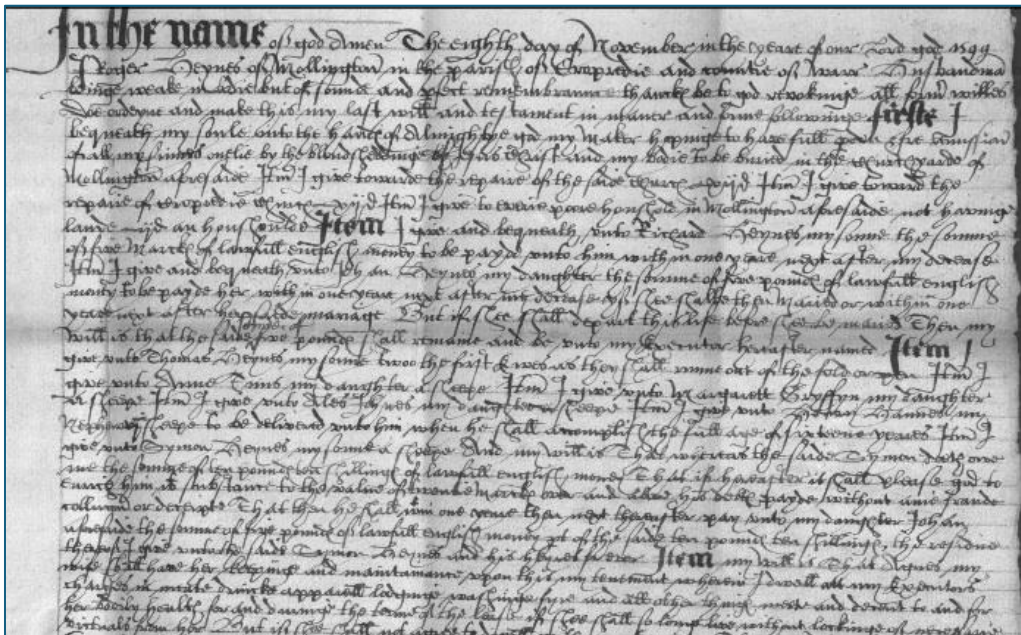 In the name of god Amen The eighth day of November in the yeare of our Lord god 1599
I Roger Heynes of Mollington in the parish of Cropredie and countie of Warr Husbandma
beinge weake in bodie but of sounde and pfect remembrance thanck be to god revokinge all formr willes
doe ordeyne and make this my last will and testament in maner and forme followinge firste I
bequeath my soule unto the hand of Almightye god my Maker hopinge to have full pdon & free remission
of all my sinnes onelie by the bloudsheddinge of Jhus Christ and my bodie to be buried in the church yarde of
Mollington aforesaide Itm I give towarde the repaire of the saide church Itm I give toward the
repaire of Cropredie church Itm I give to everie poore houshold in Mollington aforesaide not havinge
lande an houshoulde Item I give and bequeath unto Richard Heynes my sonne the somme
of five Marck of lawfull english money to be payde unto him within one yeare next after my decease
Itm I give and bequeath unto Johan Heynes my daughter the somme of five pounde of lawfull english
money to be payde her within one yeare next after my decease yf shee shalbe then Maried or within one
yeare next after her saide mariage But if shee shall depart this life before shee be maried Then my
will is that the saide somme of five pounde shall remaine and be unto my Executor hereafter named Item I
give unto Thomas Heynes my sonne twoo the first ewes as they shall runne out of the fold or pen Itm I
give unto Anne my daughter a sheepe Itm I give unto Margarett Gryffyn my daughter
a sheepe Itm I give unto Ales my daughter a sheepe Itm I give unto Henry my
Nephewe a sheepe to be delivered unto him when he shall accomplish the full age of sixteene yeares Itm I
give unto Symon Heynes my sonne a sheepe And my will is That whereas the saide Symon doeth owe
me the somme of ten pounde ten shilling of lawfull english money That if hereafter it shall please god to
enrich him in substance to the value of twentie marck over and above his dett payde without anie fraude
collusion or deceipte That then he shall wthin one yeare then next thereafter pay unto my daughter Johan
aforesaide the somme of five pounde of lawfull english money pt of the saide ten pounde ten shilling, the residue
thereof I give unto the saide Symon Heynes and his heires for ever Item my will is That Agnes my
wife shall have her keepinge and maintainance upon this my tenement wherein I dwell att my Executors
charges in meate drincke apparell lodginge washinge fyre and all other thing meete and decent to and for
her bodily health for and duringe the terme of the lease if shee shall so longe live without
victuals from her But if shee shall not agree to